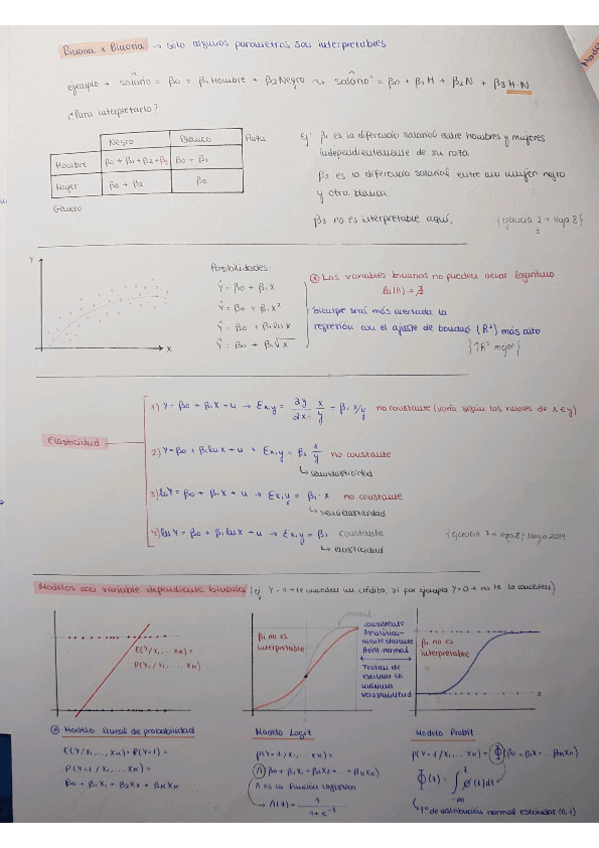 Binaria x Binaria → sólo algunos parámetros son interpretables
Modelo
ejemplo → salario = β0 + β1 Hombre + β2 Negro ↝ salario' = β0 + β1 H + β2 N + β3 H·N
¿Para interpretarlo?
Negro Blanco Raza
Hombre β0 + β1 + β2 + β3 β0 + β1
Mujer β0 + β2 β0
Género
ej: β1 es la diferencia salarial entre hombres y mujeres
independientemente de su raza
β2 es la diferencia salarial entre una mujer negra
y otra blanca.
β3 no es interpretable aquí.
{Ejercicio 2 → Hoja 8}
3
Y
X
Posibilidades:
Ŷ = β0 + β1 X
Ŷ = β0 + β1 X²
Ŷ = β0 + β1 ln X
Ŷ = β0 + β1 √X
Las variables binarias no pueden llevar logaritmo
ln(0) → ∄
siempre será más acertada la
regresión con el ajuste de bondad (R²) más alto
{↑R² mejor}
Elasticidad
1) Y = β0 + β1 X + u → Ex,y = ∂y/∂x · x/y = β1 x/y no constante (varía según los valores de x e y)
2) Y = β0 + β1 ln X + u → Ex,y = β1 1/y no constante
↳ semielasticidad
3) ln Y = β0 + β1 X + u → Ex,y = β1 · x no constante
↳ semielasticidad
4) ln Y = β0 + β1 ln X + u → Ex,y = β1 constante
↳ elasticidad
{Ejercicio 3 → Hoja 8} Mayo 2019
Modelos con variable dependiente binaria (ej. Y = 1 → te conceden un crédito, si por ejemplo Y = 0 → no te lo conceden)
E(Y/X1, ... XK)
P(Y1/X1, ... XK)
β1 no es
interpretable
normal
Tratan de
estimar la
máxima
verosimilitud
β1 no es
interpretable
Modelo lineal de probabilidad
E(Y/X1, ..., XK) = P(Y=1) =
P(Y=1/X1, ..., XK) =
β0 + β1X1 + β2X2 + βKXK
Modelo Logit
P(Y=1/X1, ... XK) =
Λ(β0 + β1X1 + β2X2 + ... + βKXK)
Λ es la función logística
→ Λ(z) = 1/1+e⁻ᶻ
Modelo Probit
P(Y=1/X1, ... XK) = Φ{β0 + β1X... βKXK}
Φ(z) = ∫ ø(t)dt
-∞
↳ fº de distribución normal estándar (0,1)